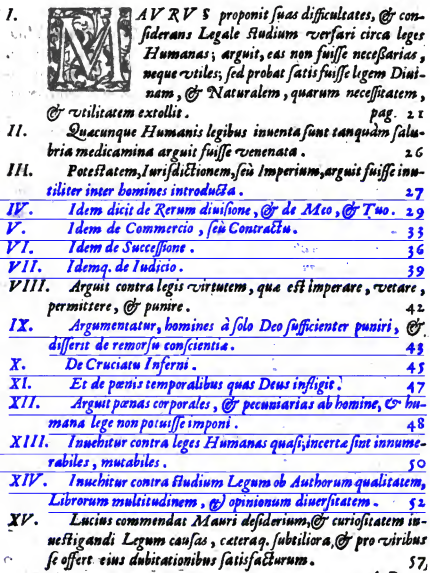 I. MAVRVS proponit suas difficultates, & con-
siderans Legale studium versari circa leges
Humanas; arguit, eas non fuisse necessarias,
neque vtiles; sed probat satis fuisse legem Diui-
nam, & Naturalem, quarum necessitatem,
& vtilitatem extollit. pag. 21
II. Quæcunque Humanis legibus inuenta sunt tanquàm salu-
bria medicamina arguit fuisse venenata. 26
III. Potestatem, Iurisdictionem, seù Imperium, arguit fuisse inu-
tiliter inter homines introducta. 27
IV. Idem dicit de Rerum diuisione, & de Meo, & Tuo. 29
V. Idem de Commercio, seù Contractu. 33
VI. Idem de Successione. 36
VII. Idemq. de Iudicio. 39
VIII. Arguit contra legis virtutem, quæ est imperare, vetare,
permittere, & punire. 42
IX. Argumentatur, homines à solo Deo sufficienter puniri, &
disserit de remorsu conscientiæ. 43
X. De Cruciatu Inferni. 45
XI. Et de pœnis temporalibus quas Deus infligit. 47
XII. Arguit pœnas corporales, & pecuniarias ab homine, & hu-
mana lege non potuisse imponi. 48
XIII. Inuehitur contra leges Humanas quasi, incertæ sint innume-
rabiles, mutabiles. 50
XIV. Inuehitur contra studium Legum ob Authorum qualitatem,
Librorum multitudinem, & opinionum diuersitatem. 52
XV. Lucius commendat Mauri desiderium, & curiositatem in-
uestigandi Legum causas, cæteraq. subtiliora, & pro viribus
se offert eius dubitationibus satisfacturum. 57